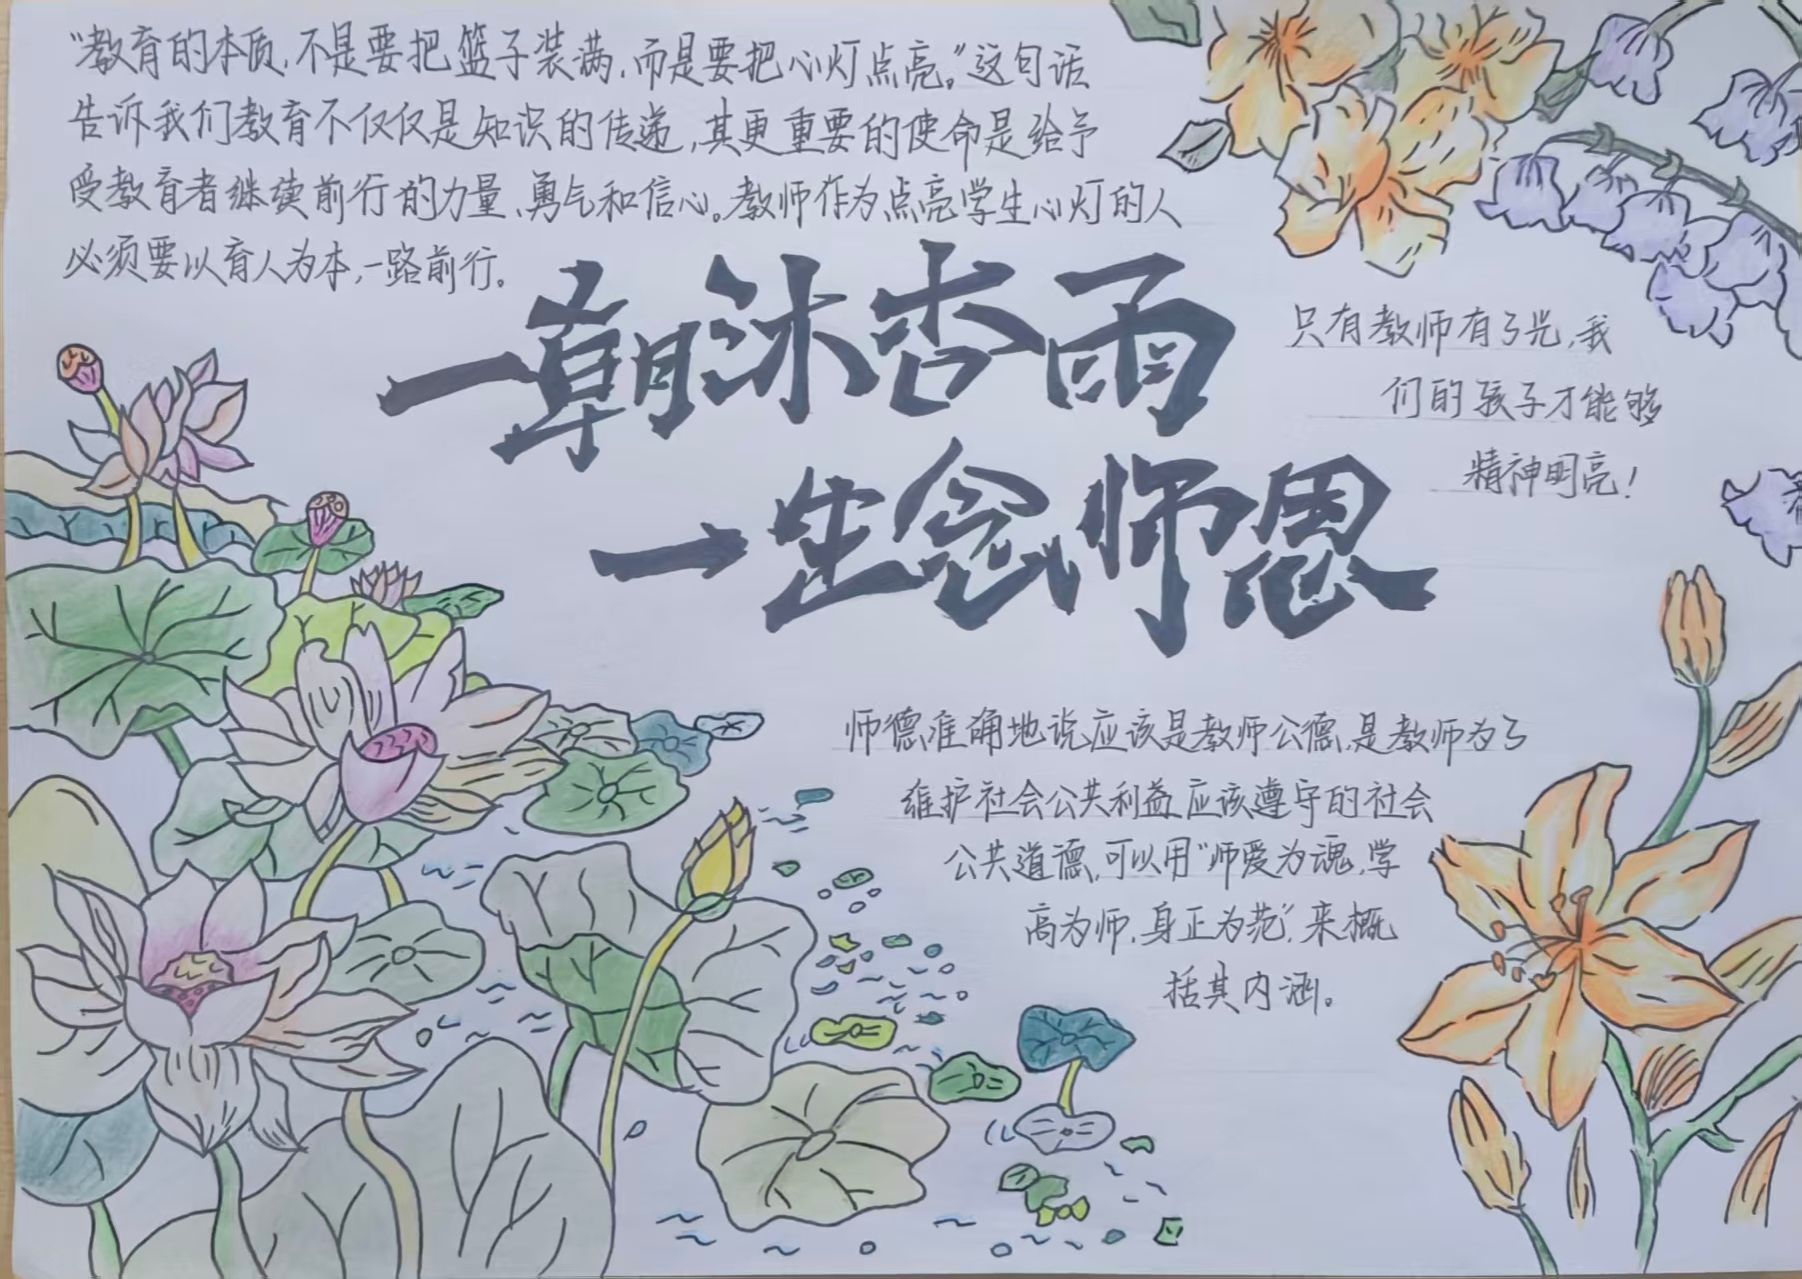 “教育的本质,不是要把篮子装满,而是要把心灯点亮。”这句话
告诉我们教育不仅仅是知识的传递,其更重要的使命是给予
受教育者继续前行的力量、勇气和信心。教师作为点亮学生心灯的人
必须要以育人为本,一路前行。
一朝沐杏雨
一生念师恩
只有教师有了光,我
们的孩子才能够
精神明亮!
师德准确地说应该是教师公德,是教师为了
维护社会公共利益,应该遵守的社会
公共道德,可以用“师爱为魂,学
高为师,身正为范”,来概
括其内涵。